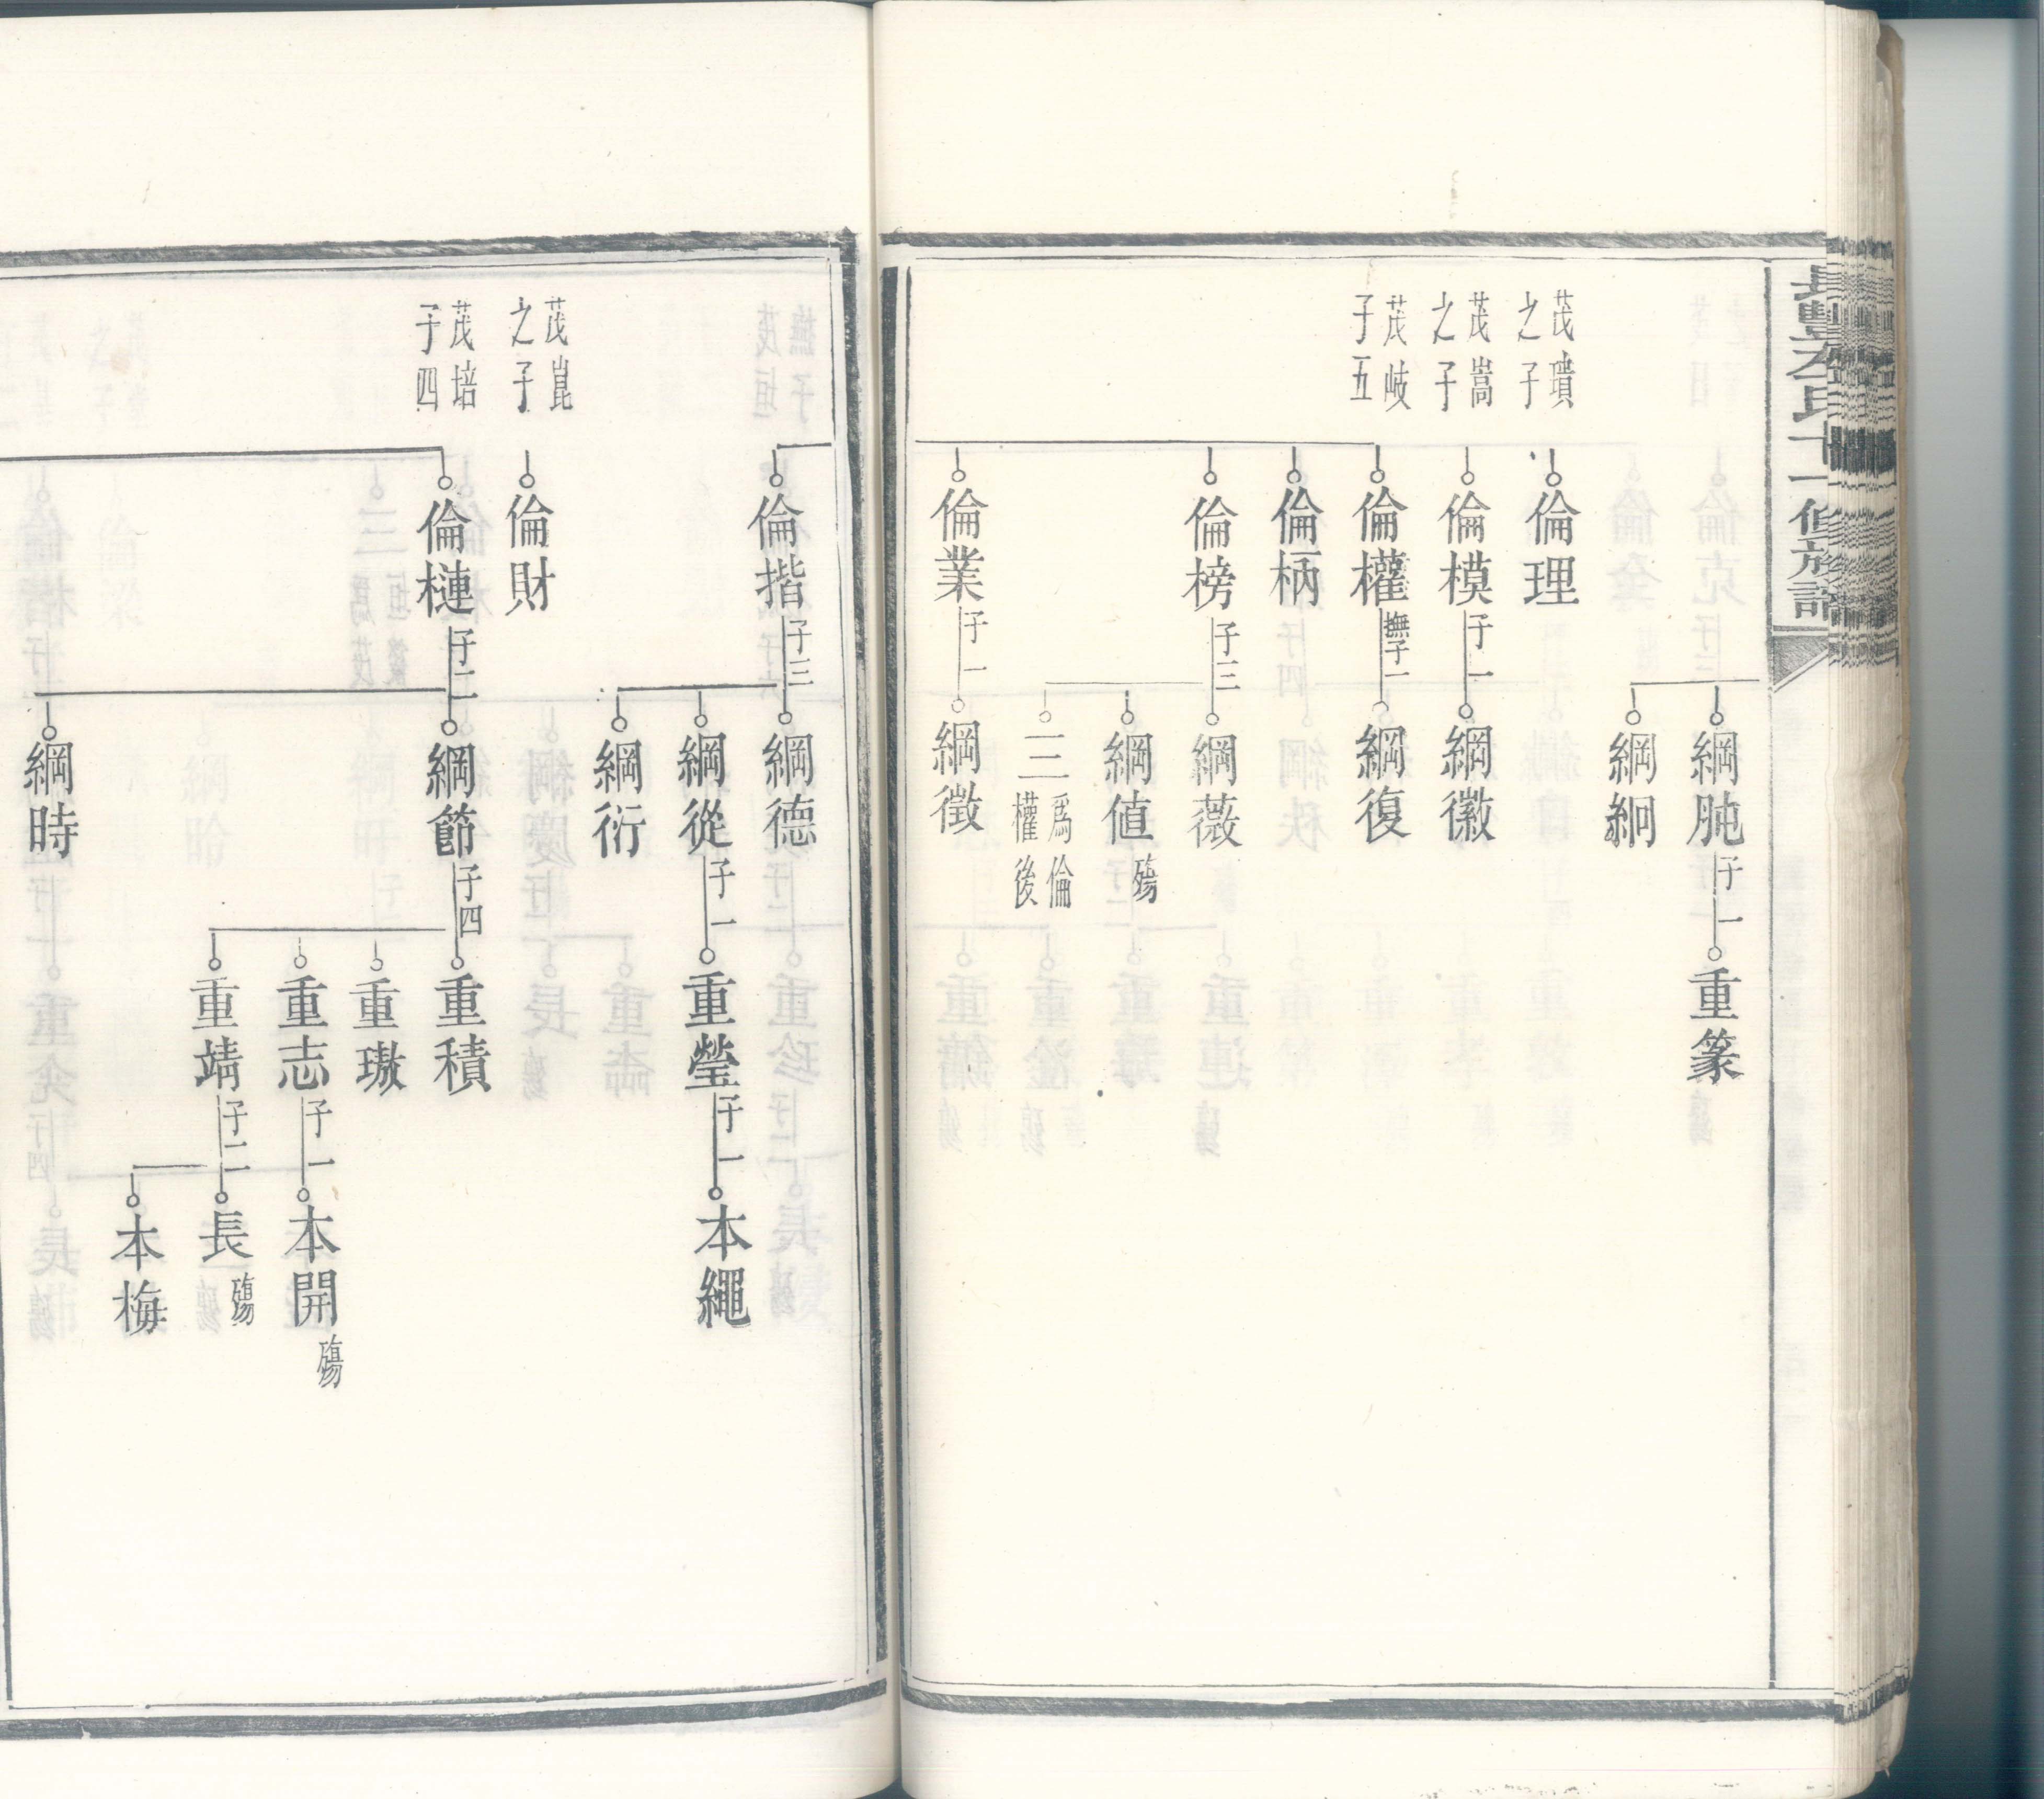 綱肫
子一
重篆
綱絅
茂璝
之子
倫理
茂嵩
之子
倫模
子一
綱徽
茂岐
子五
倫權
撫子一
綱復
倫柄
倫榜
子三
綱薇
綱值
殤
三
爲倫
權後
倫業
子一
綱徵
倫揩
子三
綱德
綱從
子一
重瑩
子一
本繩
綱衍
茂崑
之子
倫財
茂培
子四
倫槤
子二
綱節
子四
重積
重璈
重志
子一
本開
殤
重靖
子二
長
殤
本梅
綱時